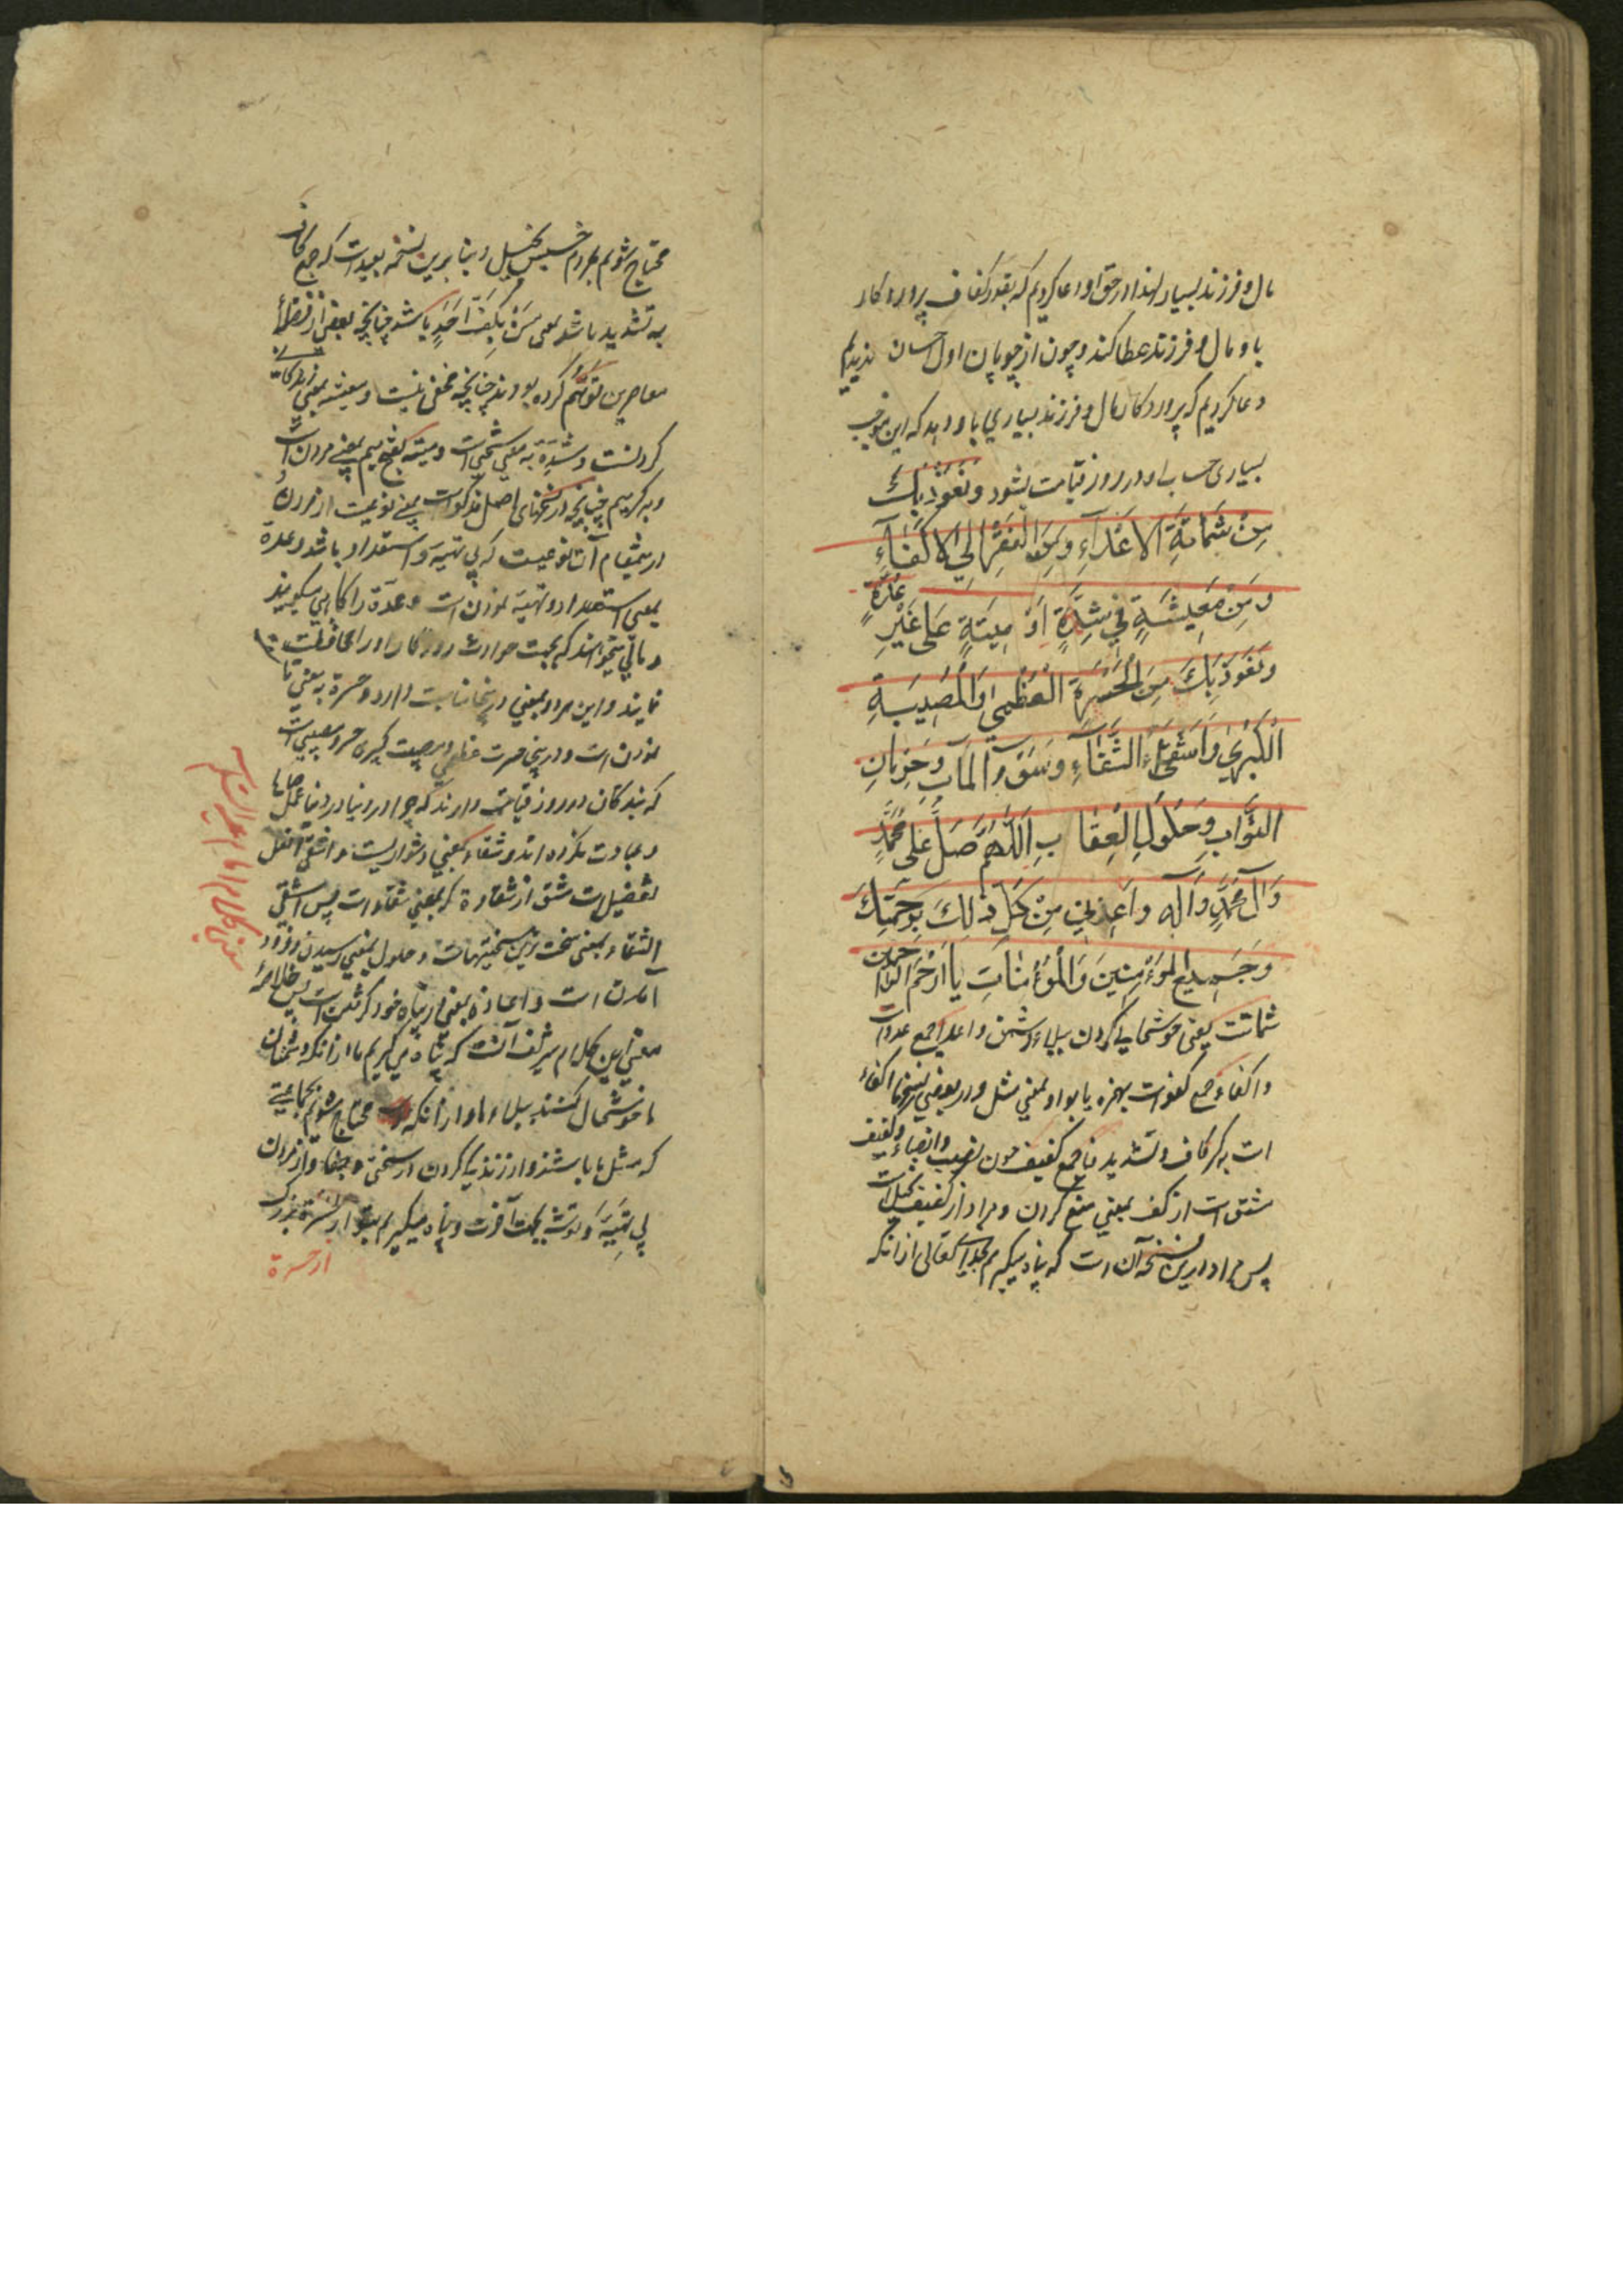 مال و فرزند بسیار لهذا در حق او دعا کردیم که بقدر کفاف پروردکار
باو مال و فرزند عطا کند و چون از چوپان اول احسان ندیدیم
دعا کردیم که پروردکار مال و فرزند بسیاری باو دهد که این موجب
بسیاری حساب او در روز قیامت بشود وَنَعُوذُ بِكَ
مِنْ شَمَاتَةِ الْاَعْدَآءِ وَمِنَ الْفَقْرِ اِلَی الْاَکْفَاءِ
وَمِنْ مَعِيشَةٍ فِي شِدَّةٍ اَوْ مِيتَةٍ عَلَى غَيْرِ عُدَّةٍ
وَنَعُوذُ بِكَ مِنَ الْحَسْرَةِ الْعُظْمَى وَالْمُصِيبَةِ
الْكُبْرَى وَاَشْقَى الشَّقَآءِ وَسُوءِ الْمَآبِ وَحِرْمَانِ
الثَّوَابِ وَحُلُولِ الْعِقَابِ اَللّٰهُمَّ صَلِّ عَلَى مُحَمَّدٍ
وَآلِ مُحَمَّدٍ وَآلِهِ وَاَعِذْنِي مِنْ كُلِّ ذٰلِكَ بِرَحْمَتِكَ
وَجَمِيعَ الْمُؤْمِنِينَ وَالْمُؤْمِنَاتِ يَا اَرْحَمَ الرَّاحِمِينَ
شماتت یعنی خوشحالی کردن ببلاء دشمن و اعدا جمع عدوات
و اکفاء جمع کفوات بهمزه یا بواو بمعنی مثل و در بعضی نسخها اکفاء
است بکسر کاف و تشدید فا جمع کفیف چون نصیب و انصباء و کفیف
مشتق است از کف بمعنی منع کردن و مراد از کفیف بخیل است
پس مراد ازین نسخه آن است که پناه میکیریم بخدای تعالی از آنکه
محتاج شویم بمردم خسیس بخیل و بنا برین نسخه بعید است که جمع کاف
به تشدید باشد یعنی مَنْ يَكِفُّ اَحَدٍ باشد چنانچه بعضی از فضلاء
معاصرین توهم کرده بودند چنانچه مخفی نیست و معیشة بمعنی زندکانی
کردنست و شدة به معنی سختی است و میتة بفتح میم بمعنی مردن است
و بکسر میم چنانچه در نسخهای اصل مذکور است بمعنی نوعیست از مردن و
درین مقام آن نوعیست که بی تهیه و استعداد باشد و عدة
بمعنی استعداد و تهیه نمودن است و عدة را کاهی میکویند
و مالی میخواهند که بجهت حوادث روزکار او را محافظت
نمایند و این مراد بمعنی درینجا مناسبت دارد و حسرة به معنی
نمودن است و درینجا حسرت عظمی و مصیبت کبری حسرت و مصیبتی است
که بندکان در روز قیامت دارند که چرا در دنیا در دنیا عمل صالح
و عبادت نکرده اند و شقاء بمعنی دشواریست و اشقی افعل
تفضیل است مشتق از شقاوة که بمعنی شقاء است پس اشقی
الشقاء بمعنی سخت ترین سختیهاست و حلول بمعنی رسیدن و فرود
آمدن است و اعاذه بمعنی در پناه خود کرفتن است پس خلاصهٔ
معنی این کلام شریف آنست که پناه می کیریم ما از آنکه دشمنان
ما خوشحال کنند ببلاء ما و از آنکه محتاج شویم بجماعتی
که مثل ما باشند و از زندکی کردن در سختی و جفا و از مردن
بی تهیه و توشه بجهت آخرت و پناه میکیریم بتو از حسرة بزرک
از حسرة